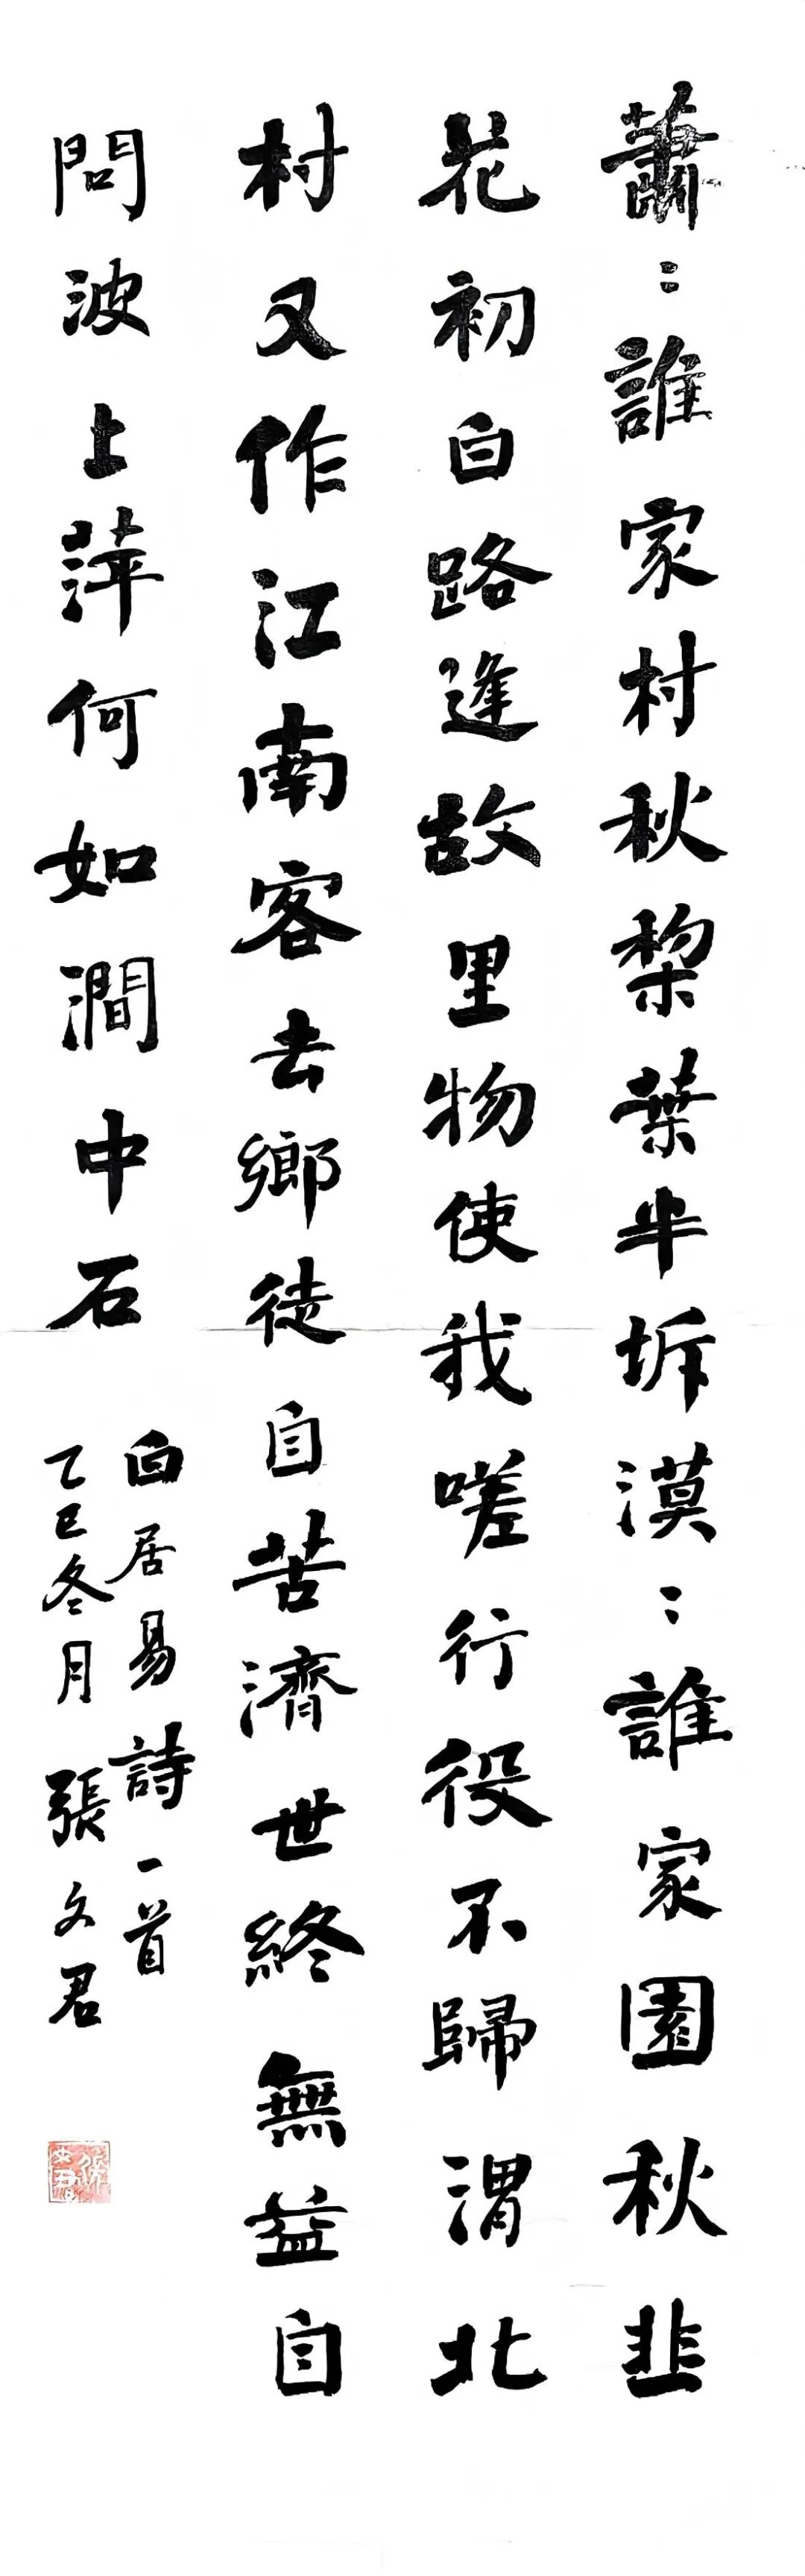 蕭〻誰家村秋棃葉半坼漠〻誰家園秋韭
花初白路逢故里物使我嗟行役不歸渭北
村又作江南客去鄉徒自苦濟世終無益自
問波上萍何如澗中石
白居易詩一首
乙巳冬月 張文君